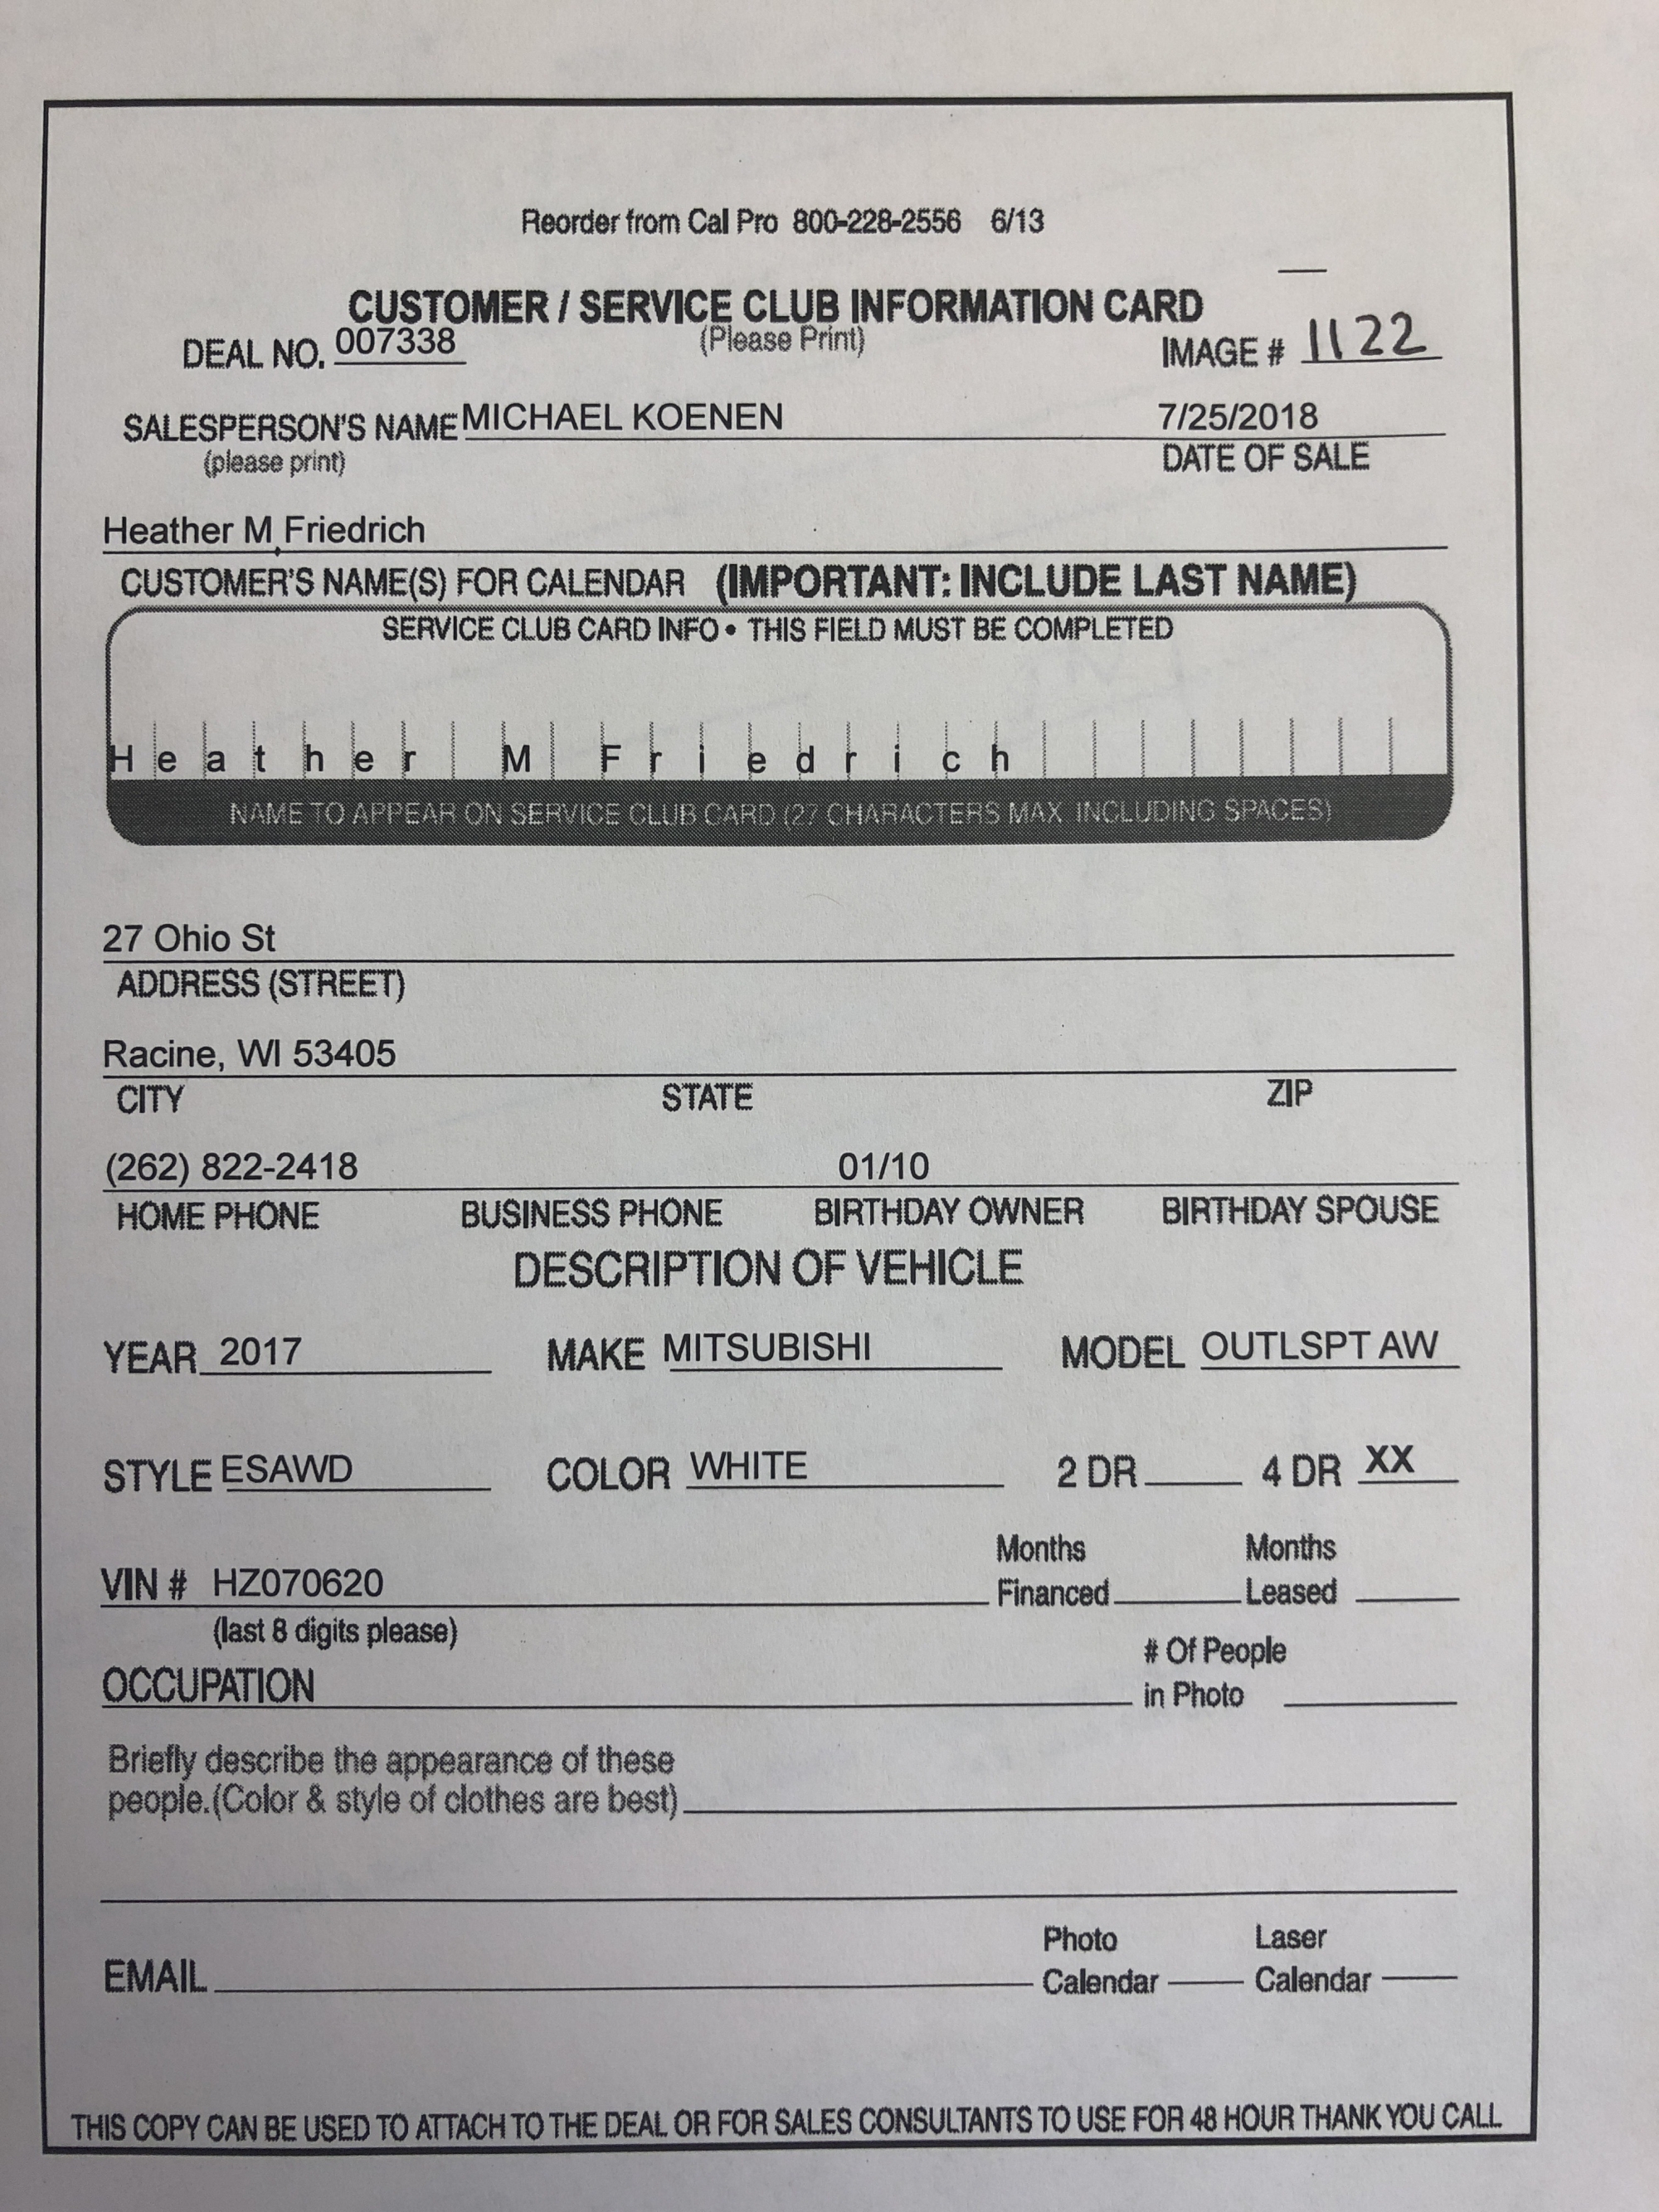 Reorder from Cal Pro 800-228-2556 6/13
CUSTOMER / SERVICE CLUB INFORMATION CARD
DEAL NO. 007338 (Please Print) IMAGE # 1122
SALESPERSON'S NAME MICHAEL KOENEN 7/25/2018
(please print) DATE OF SALE
Heather M Friedrich
CUSTOMER'S NAME(S) FOR CALENDAR (IMPORTANT: INCLUDE LAST NAME)
SERVICE CLUB CARD INFO • THIS FIELD MUST BE COMPLETED
Heather M Friedrich
NAME TO APPEAR ON SERVICE CLUB CARD (27 CHARACTERS MAX. INCLUDING SPACES)
27 Ohio St
ADDRESS (STREET)
Racine, WI 53405
CITY STATE ZIP
(262) 822-2418 01/10
HOME PHONE BUSINESS PHONE BIRTHDAY OWNER BIRTHDAY SPOUSE
DESCRIPTION OF VEHICLE
YEAR 2017 MAKE MITSUBISHI MODEL OUTLSPT AW
STYLE ESAWD COLOR WHITE 2 DR 4 DR XX
Months Months
VIN # HZ070620 Financed Leased
(last 8 digits please)
# Of People
OCCUPATION in Photo
Briefly describe the appearance of these
people.(Color & style of clothes are best)
Photo Laser
EMAIL Calendar Calendar
THIS COPY CAN BE USED TO ATTACH TO THE DEAL OR FOR SALES CONSULTANTS TO USE FOR 48 HOUR THANK YOU CALL